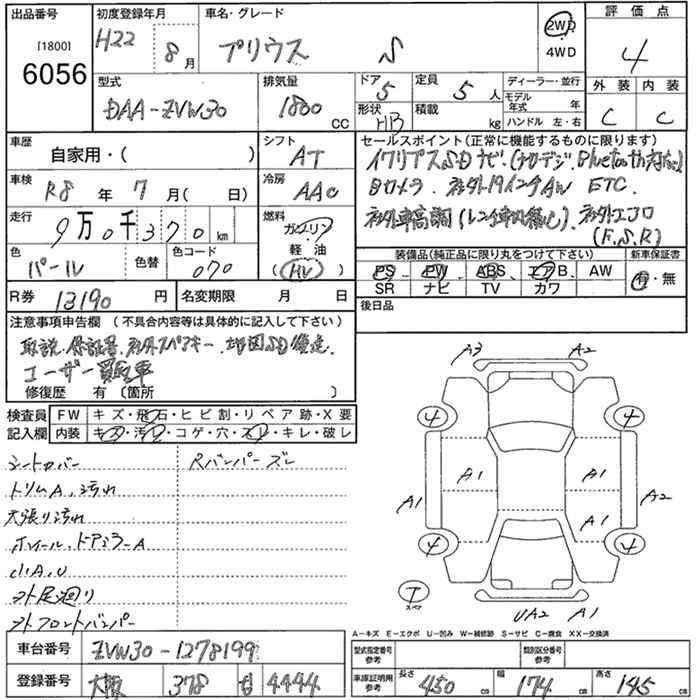 出品番号 初度登録年月 車名・グレード 2WD 評価点
[1800] H22 8月 プリウス S 4WD 4
6056
型式 排気量 ドア 5 定員 5人 ディーラー・並行 外装 内装
DAA-ZVW30 1800 CC 形状 HB 積載 kg モデル年式 年 C C
ハンドル 左・右
車歴 シフト セールスポイント(正常に機能するものに限ります)
自家用・( ) AT イクリプスSDナビ.(ナカデジ.Bluetooth内)
車検 R8年 7月( 日) 冷房 AAC Bカメラ. 社外19インチAW ETC
走行 9万0千370km 燃料 ガソリン 社外車高調 社外エアロ
軽油 (F.S.R)
色 パール 色替 色コード 070 HV 装備品(純正品に限り丸をつけて下さい) 新車保証書
PS PW ABS エアB AW 有・無
R券 13190円 名変期限 月 日 SR ナビ TV カワ
後日品
注意事項申告欄 (不具合内容等は具体的に記入して下さい)
取説.保証書.社外スペアキー.地図SD欠品
ユーザー買取車
修復歴 有 〔箇所 〕
A3 A2
検査員 FW キズ・飛石・ヒビ割・リペア跡・X要
記入欄 内装 キズ・汚レ・コゲ・穴・スレ・キレ・破レ
4 4
シートカバー Rバンパーズレ
トリムA.汚れ
A1 A1
天張り汚れ
A1 A2
A1
ホイール.ドアミラーA
4 4
小A.U
ヨト足廻り
T
スペア
ヨトフロントバンパー
UA2 A1
A-キズ E-エクボ U-凹み W-補修跡 S-サビ C-腐食 XX-交換済
車台番号 ZVW30-1278199 型式指定番号 参考 類別区分番号 参考
登録番号 大阪 378 4444 車庫証明用 参考 長さ 450cm 幅 174cm 高さ 145cm